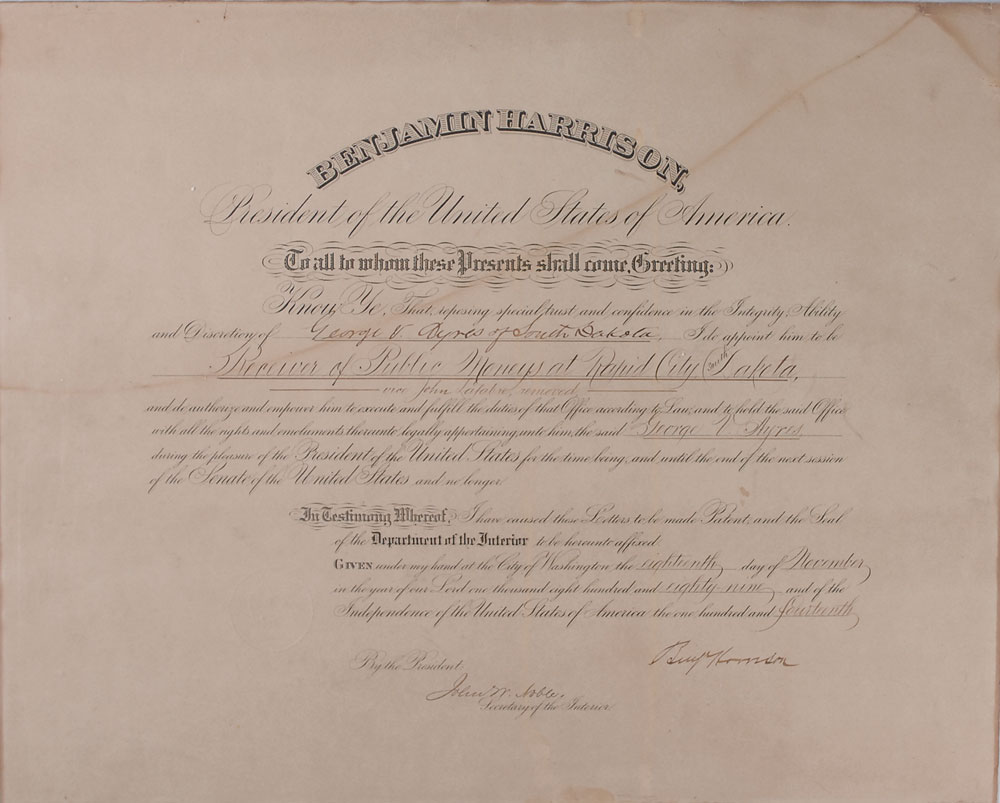 BENJAMIN HARRISON,
President of the United States of America.
To all to whom these Presents shall come, Greeting:
Know Ye, That, reposing special trust and confidence in the Integrity, Ability
and Discretion of George V. Ayres of South Dakota, I do appoint him to be
Receiver of Public Moneys at Rapid City South Dakota,
vice John removed
and do authorize and empower him to execute and fulfill the duties of that Office according to Law; and to hold the said Office
with all the rights and emoluments thereunto legally appertaining, unto him, the said George V. Ayres,
during the pleasure of the President of the United States for the time being, and until the end of the next session
of the Senate of the United States and no longer.
In Testimony Whereof, I have caused these Letters to be made Patent, and the Seal
of the Department of the Interior to be hereunto affixed.
GIVEN under my hand at the City of Washington, the eighteenth day of November,
in the year of our Lord one thousand eight hundred and eighty-nine, and of the
Independence of the United States of America the one hundred and fourteenth
Benj Harrison
By the President:
John W. Noble.
Secretary of the Interior.